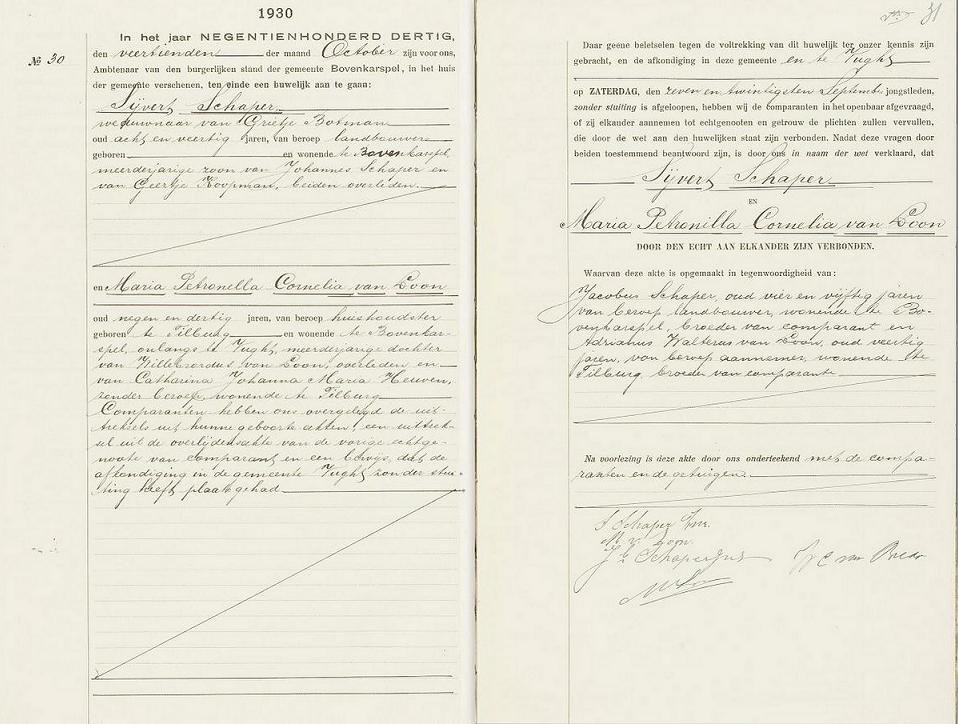 1930
In het jaar NEGENTIENHONDERD DERTIG,
№ 30
den veertienden der maand October zijn voor ons,
Ambtenaar van den burgerlijken stand der gemeente Bovenkarspel, in het huis
der gemeente verschenen, ten einde een huwelijk aan te gaan:
Sijvert Schaper,
weduwnaar van Grietje Botman
oud acht en veertig jaren, van beroep landbouwer
geboren en wonende te Bovenkarspel,
meerderjarige zoon van Johannes Schaper en
van Geertje Koopman, beiden overleden.
en Maria Petronella Cornelia van Loon
oud negen en dertig jaren, van beroep huishoudster
geboren te Tilburg en wonende te Bovenkar-
spel, onlangs te Vught, meerderjarige dochter
van Willebrordus van Loon, overleden en
van Catharina Johanna Maria Heuven,
zonder beroep, wonende te Tilburg
Comparanten hebben ons overgelegd de uit-
treksels uit hunne geboorte akten, een uittrek-
sel uit de overlijdensakte van de vorige echtge-
noote van comparant en een bewijs, dat de
afkondiging in de gemeente Vught zonder stui-
ting heeft plaats gehad
31
Daar geene beletselen tegen de voltrekking van dit huwelijk ter onzer kennis zijn
gebracht, en de afkondiging in deze gemeente en te Vught
op ZATERDAG, den zeven en twintigsten September jongstleden,
zonder stuiting is afgeloopen, hebben wij de comparanten in het openbaar afgevraagd,
of zij elkander aannemen tot echtgenooten en getrouw de plichten zullen vervullen,
die door de wet aan den huwelijken staat zijn verbonden. Nadat deze vragen door
beiden toestemmend beantwoord zijn, is door ons in naam der wet verklaard, dat
Sijvert Schaper
EN
Maria Petronilla Cornelia van Loon
DOOR DEN ECHT AAN ELKANDER ZIJN VERBONDEN.
Waarvan deze akte is opgemaakt in tegenwoordigheid van:
Jacobus Schaper, oud vier en vijftig jaren
van beroep landbouwer, wonende te Bo-
venkarspel, broeder van comparant en
Adrianus Walterus van Loon, oud veertig
jaren, van beroep aannemer, wonende te
Tilburg broeder van comparante
Na voorlezing is deze akte door ons onderteekend met de compa-
ranten en de getuigen.
S Schaper
M v. Loon.
Schaper